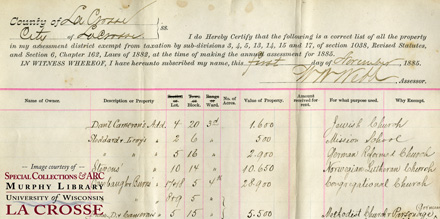 County of La Crosse
City of La Crosse } ss.
I do Hereby Certify that the following is a correct list of all the property
in my assessment district exempt from taxation by sub-divisions 3, 4, 5, 13, 14, 15 and 17, of section 1038, Revised Statutes,
and Section 6, Chapter 162, Laws of 1882, at the time of making the annual assessment for 1885.
IN WITNESS WHEREOF, I have hereunto subscribed my name, this first day of November 1885.
Assessor.
Name of Owner. Description of Property Lot. Block. Ward. No. of Acres. Value of Property. Amount received for rent. For what purpose used. Why Exempt.
Danl Cameron's Add 4 20 3rd 1.600 Jewish Church
Stoddard & Levy's 2 6 500 Mission School
5 16 2.900 German Reformed Church
Stevens 10 14 10.650 Norwegian Lutheran Church
Burns 5 4th 28.900 Congregational Church
5
Cameron 5 15 5.500 Methodist Church & Parsonage
Image courtesy of
SPECIAL COLLECTIONS & ARC
MURPHY LIBRARY
UNIVERSITY OF WISCONSIN
LA CROSSE